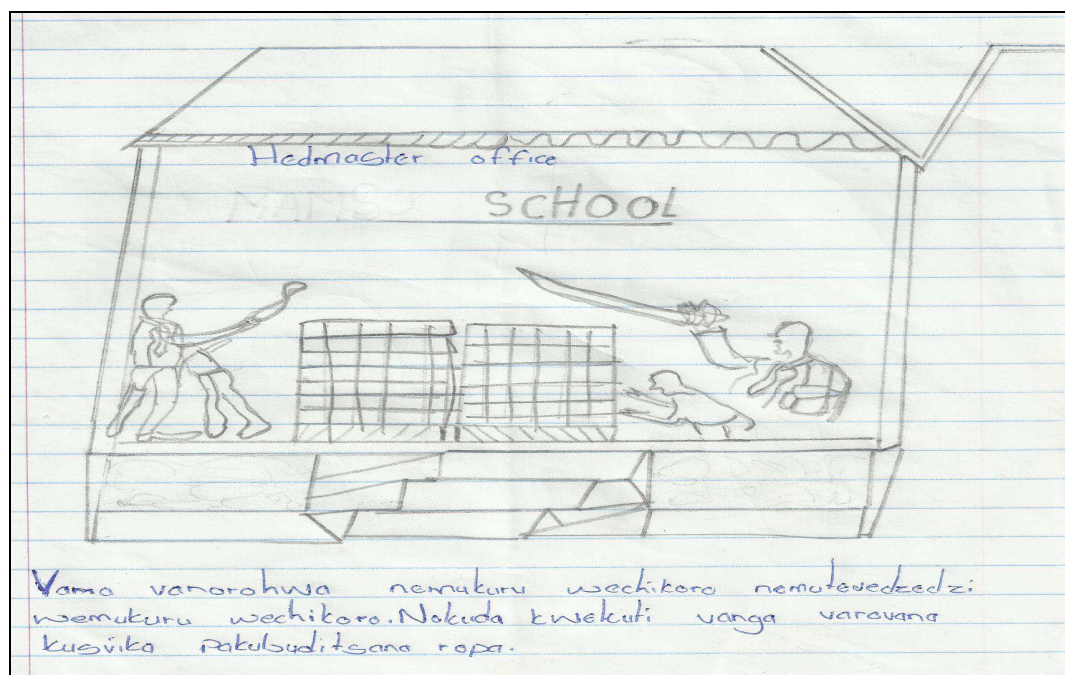 Hedmaster office
SCHOOL
Vana vanorohwa nemukuru wechikoro nemutevedzedzi
wemukuru wechikoro. Nokuda kwekuti vanga varovana
kusvika pakubuditsana ropa.